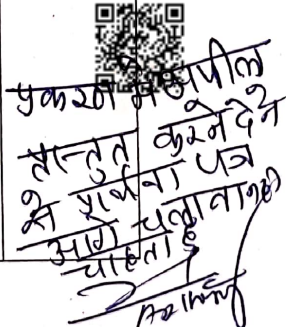 प्रकरण में अपील
प्रस्तुत करने देने
से प्रार्थना पत्र
आगे चलाना नहीं
चाहता है